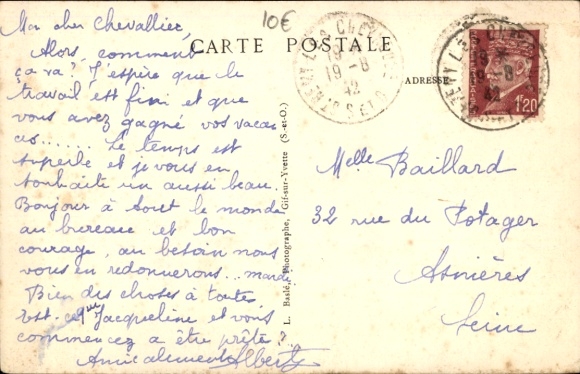 10€
CARTE POSTALE
ADRESSE
Mon cher Chevallier,
Alors, comment
ça va? J'espère que le
travail est fini et que
vous avez gagné vos vacan
ces....... Le temps est
superbe et je vous en
souhaite un aussi beau.
Bonjour à tout le monde
au bureau et bon
courage, au besoin nous
vous en redonnerons... mardi
Bien des choses à toute
est-ce que Jacqueline et vous
commencez a être prête?
Amicalement Alberte
L. Baslé, Photographe, Gif-sur-Yvette (S.-et-O.)
19 -8
42
1f20
Melle Baillard
32 rue du Potager
Asnières
Seine